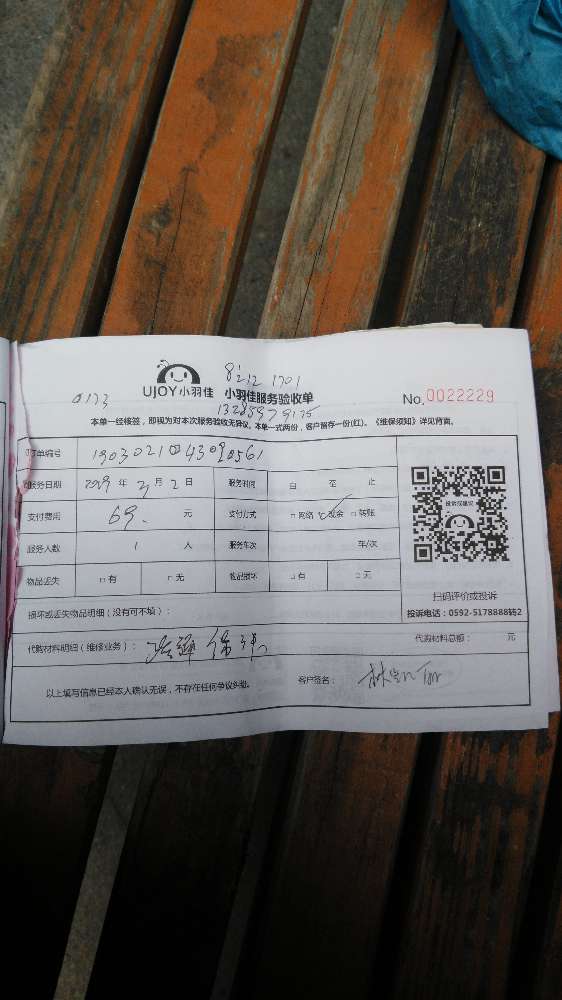 8212 1701
0173 UJOY小羽佳 小羽佳服务验收单 No.0022229
本单一经核签，即视为对本次服务验收无异议。本单一式两份，客户留存一份(红)。《维保须知》详见背面。
订单编号
服务日期 2019 年 3 月 2 日 服务时间 自 至 止
支付费用 69. 元 支付方式 □网络 ☑现金 □转账
服务人数 1 人 服务车次 车/次
物品丢失 □有 □无 物品损坏 □有 □无
扫码评价或投诉
投诉电话：0592-5178888转2
损坏或丢失物品明细（没有可不填）：
代购材料明细（维修业务）： 代购材料总额： 元
以上填写信息已经本人确认无误，不存在任何争议纠纷。 客户签名：